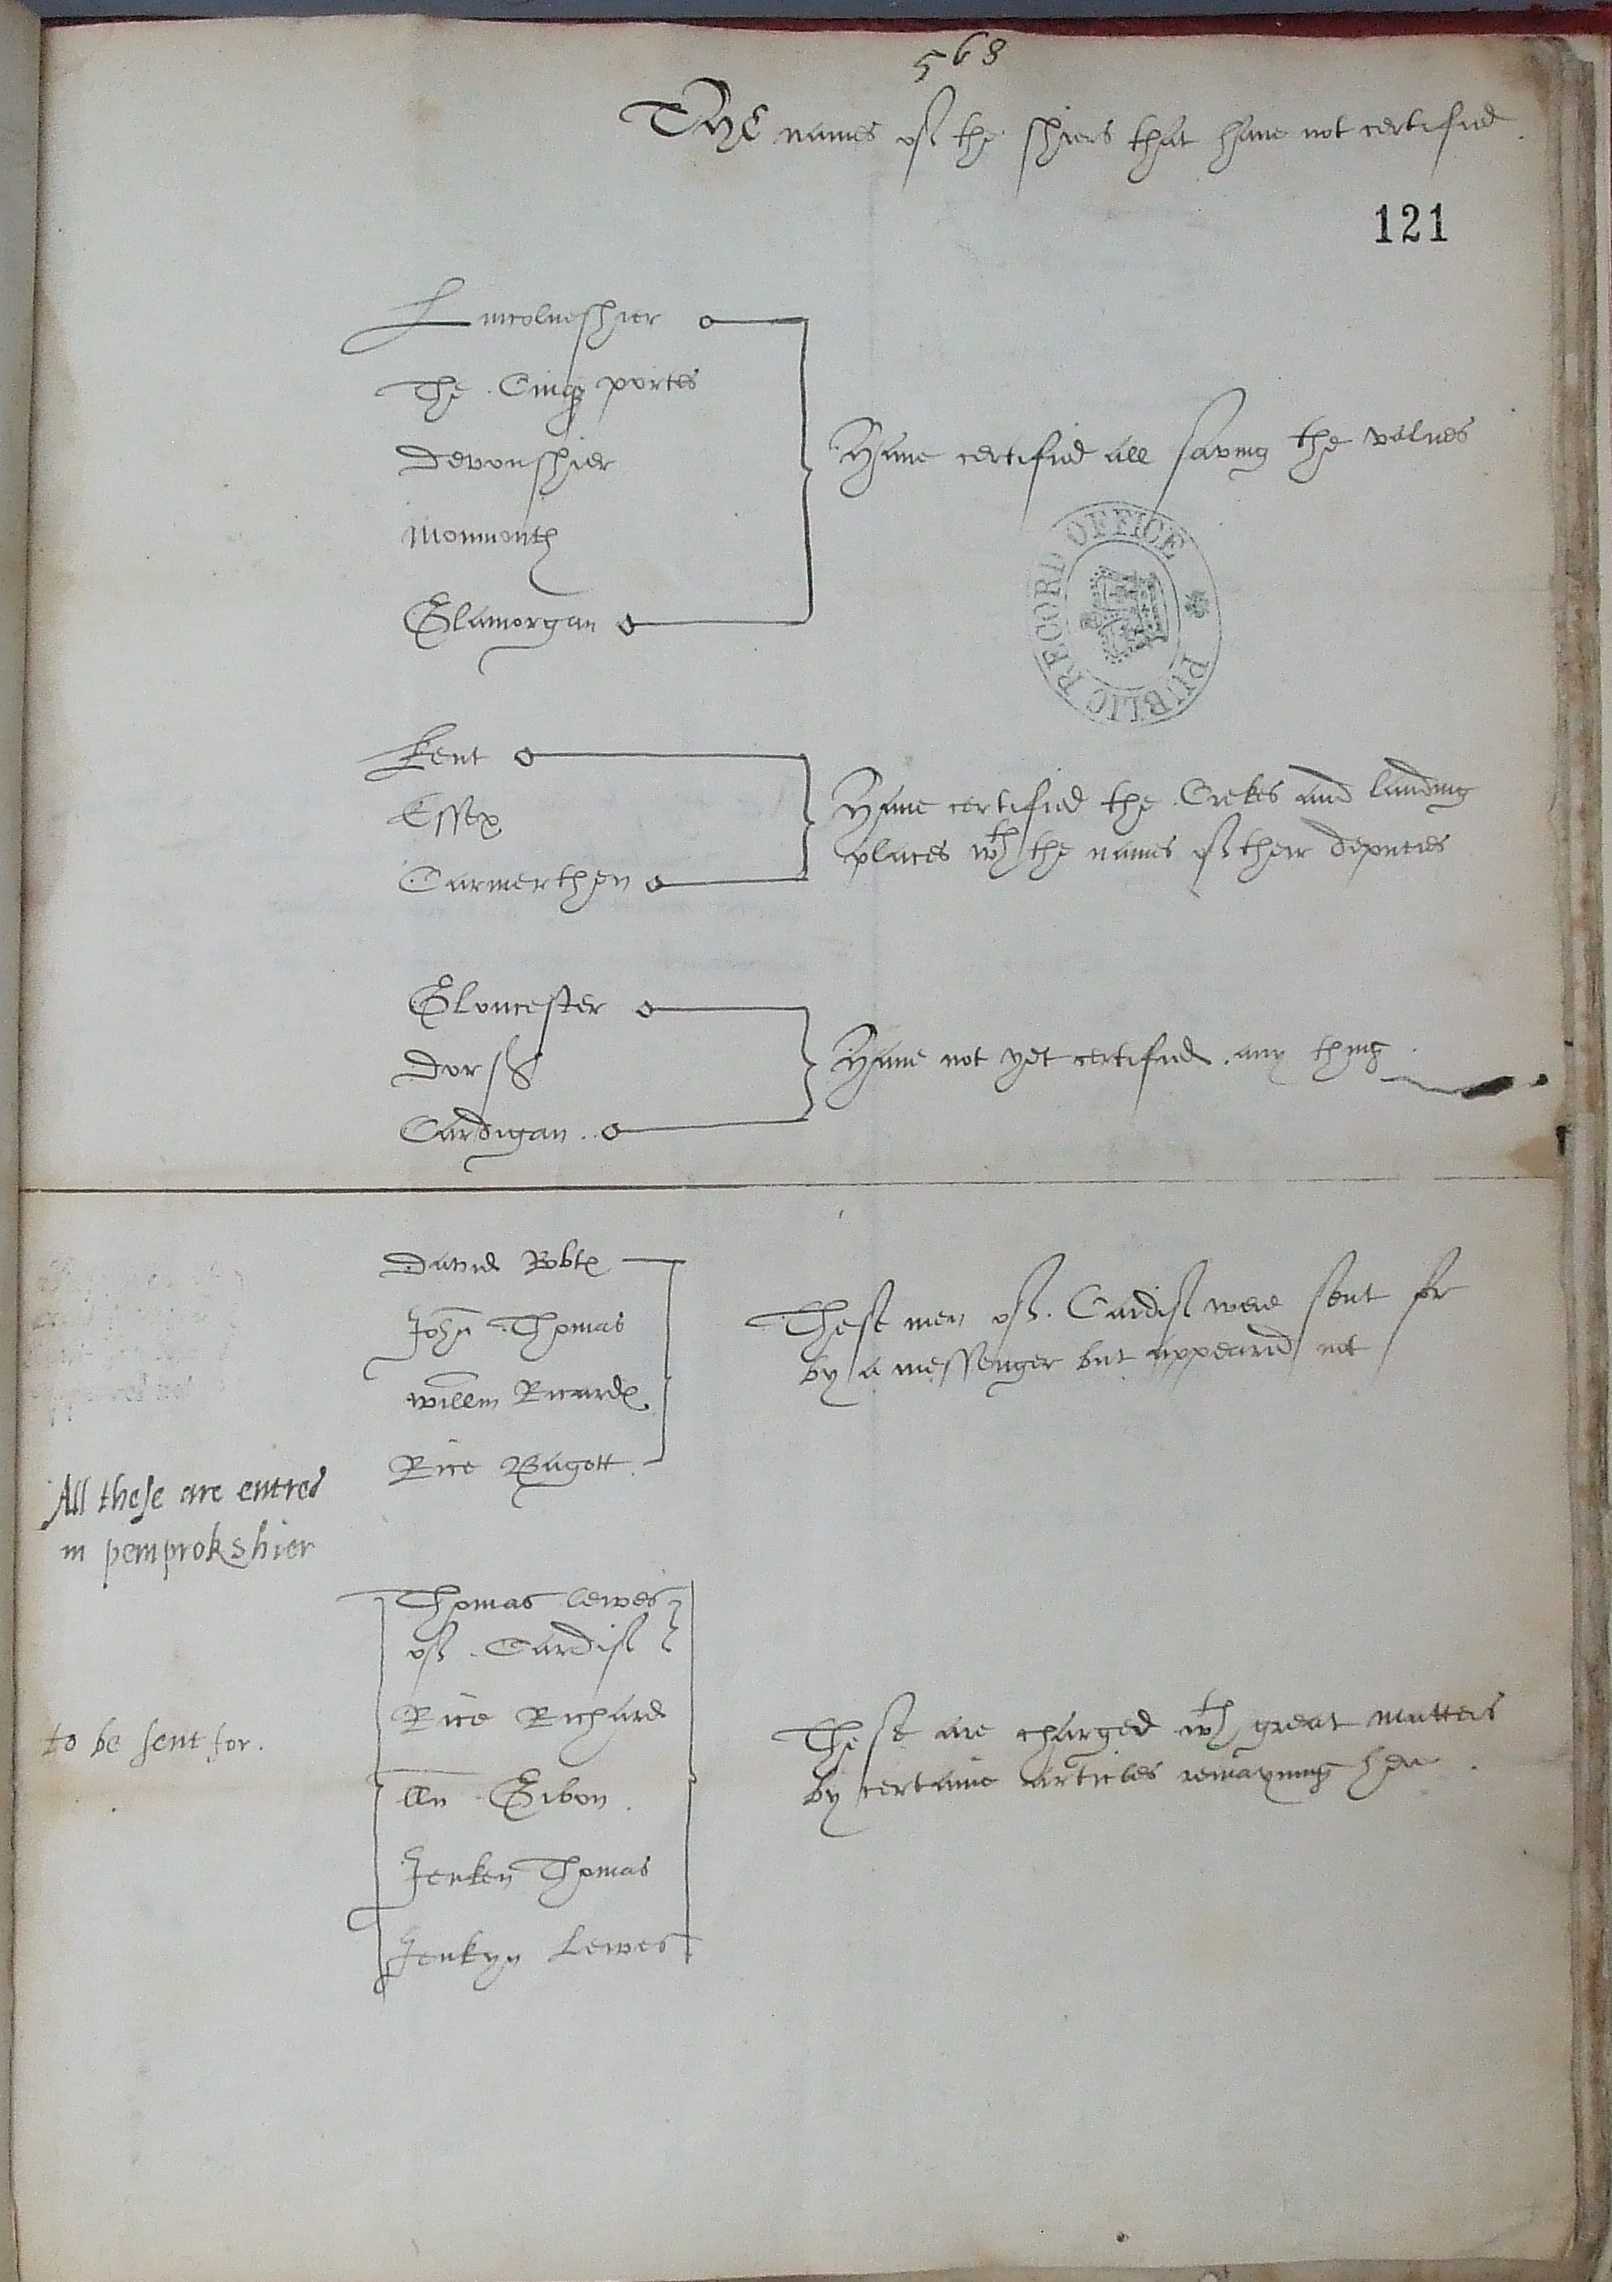 568
The names of the shiers that haue not certified
121
Lincolneshier
The Cinq portes
Devonshier
Monmouth
Glamorgan
Haue certified all saving the values
PUBLIC RECORD OFFICE
Kent
Essex
Carmerthen
Haue certified the Crekes and landing
places wth the names of their deputies
Gloucester
Dors
Cardigan
Haue not yet certified any thing
David Robts
John Thomas
willm Ricard
Rice Bagott
These men of Cardif were sent for
by a messenger but appeared not
All these are entred
in pemprokshier
Thomas Lewes
of Cardif
Rice Richard
to be sent for.
lln Gibon
Jenken Thomas
Jenkyn Lewes
These are charged wth great matters
by certaine articles remayning here